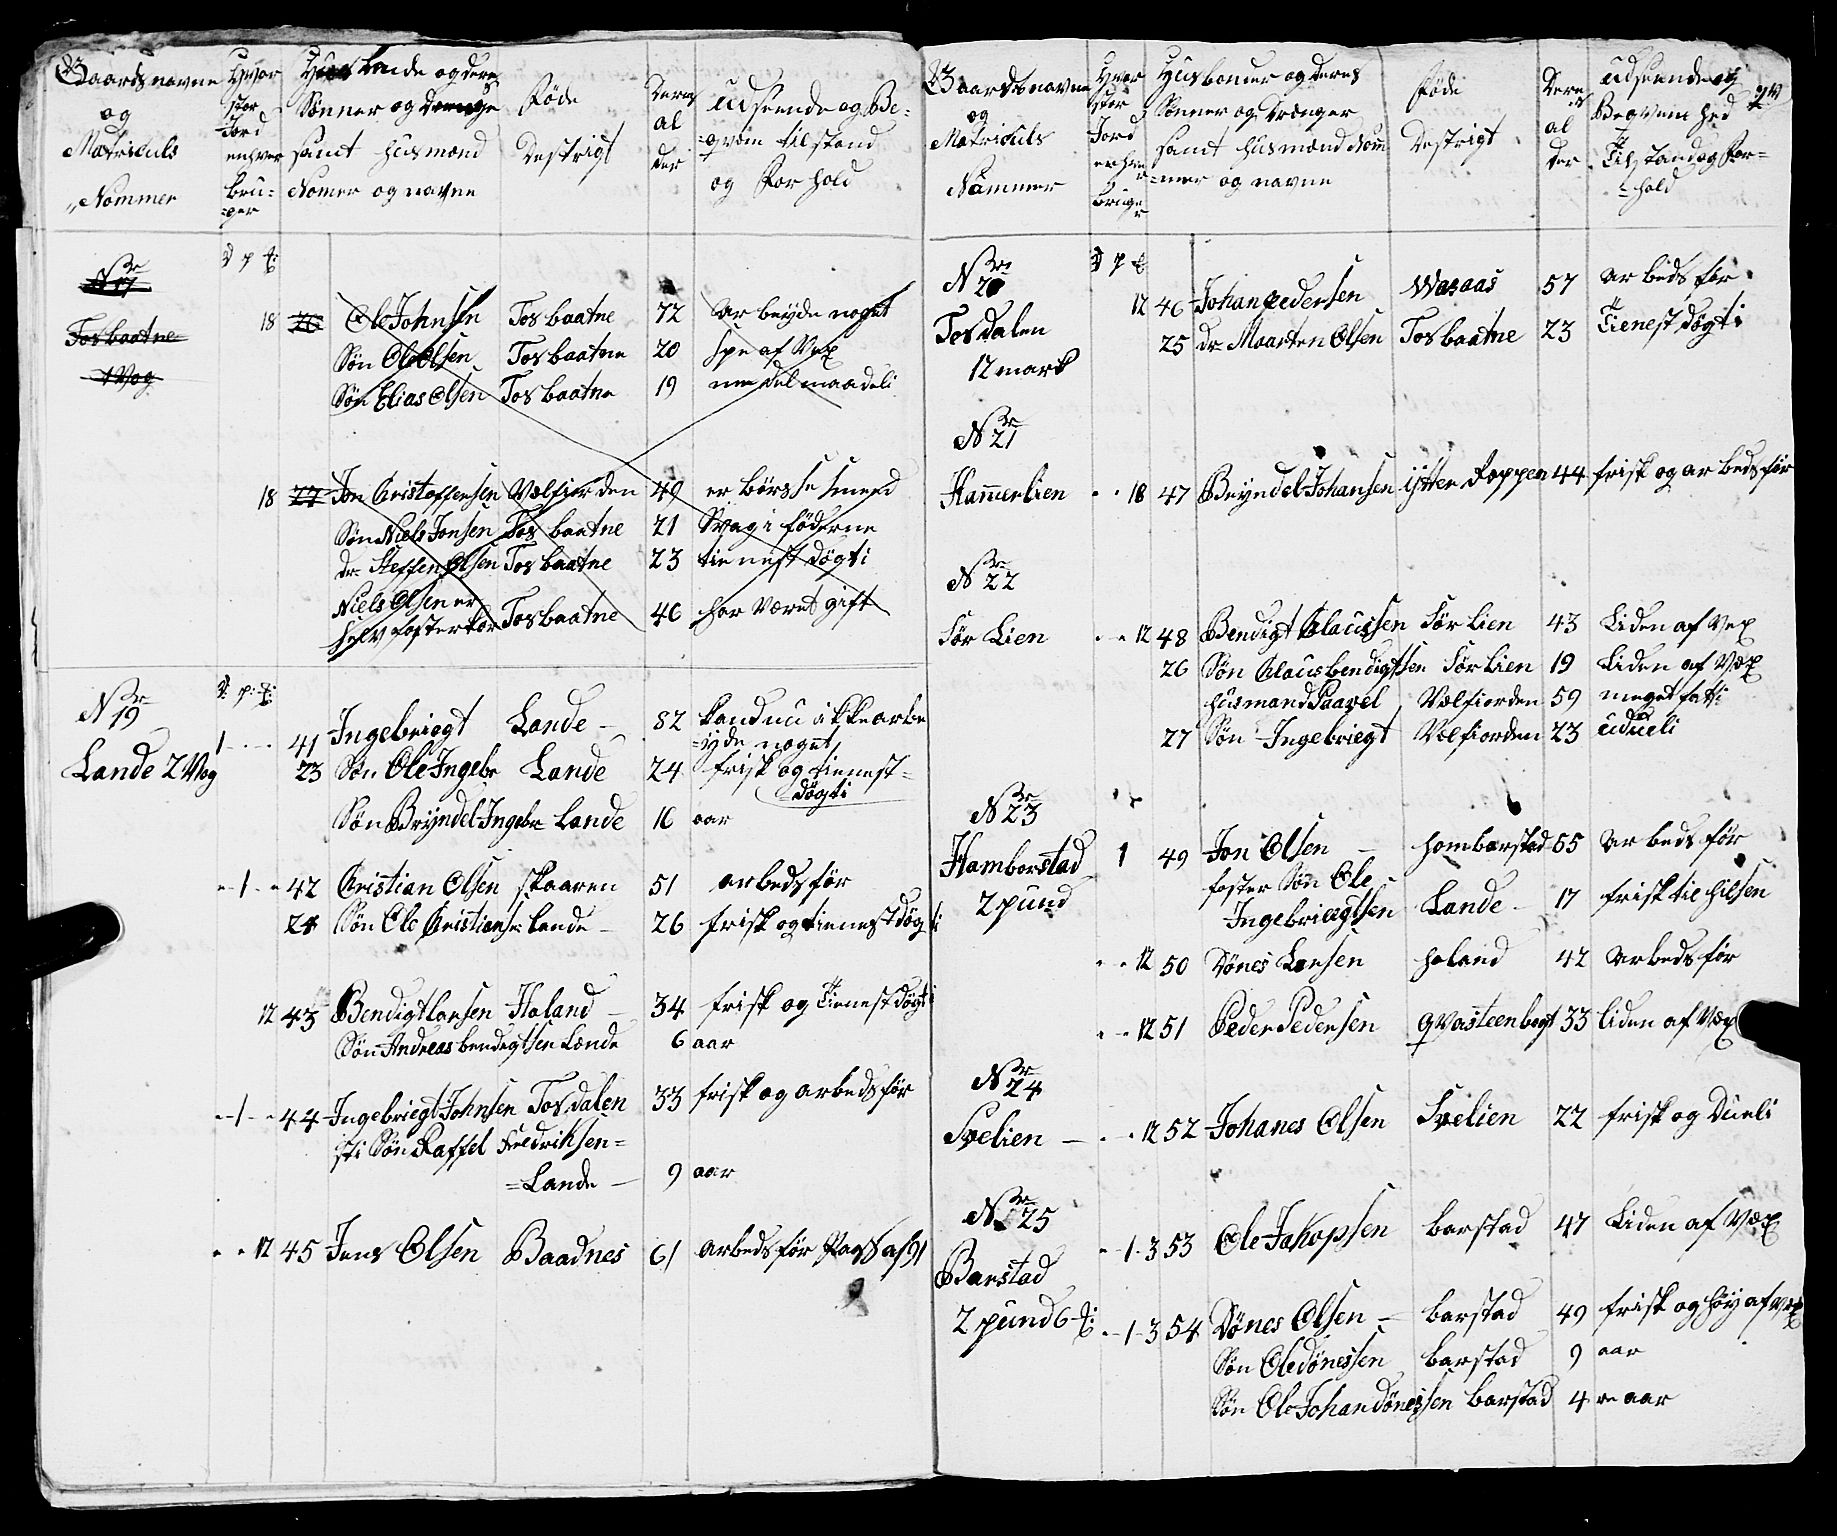 Gaards navne
og
Matriculs
Nommer
Hvor
stor
Jord
enhver
bru-
ger
Husbonde og deres
Sönner og Drenge
samt husmænd
Nomer og navne
Föde
Destrigt
Deres
al
der
Udseende og Be-
qvem tilstand
og Forhold
Nr 17
Tosbaatne
1 Vog
V p
18 26 Ole Johnsen Tosbaatne 72 Arbeyde noget
Søn Ole Olsen Tosbaatne 20 af Vex
Søn Elias Olsen Tosbaatne 19 medelmaadeli
18 27 Jon Cristoffersen Velfiorden 49 er börsse smed
Søn Niels Jonsen Tosbaatne 21 Svag i föderne
dr Steffen Olsen Tosbaatne 23 tienest dögti
Niels Olsen er
selv fosterkar Tosbaatne 46 har Været gift
Nr 19
Lande 2 Vog
V: p:
1 41 Ingebriegt Lande 82 kand nu ikke arbe
=ijde noget
23 Søn Ole Ingebr Lande 24 frisk og tienest=
dögti
Søn Bryndel Ingebr Lande 16 aar
1 42 Cristian Olsen skaaren 51 arbeds för
24 Søn Ole Cristianse Lande 26 frisk og tienest dögti
12 43 Bendigt Larsen Haland 34 frisk og Tienest dögti
Søn Andreas bendigtsen Lande 6 aar
1 44 Ingebriegt Johnsen Tosdalen 33 frisk og arbeds för
sti Søn Raffel Fredriksen=
=Lande 9 aar
12 45 Jens Olsen Baadnes 61 arbeds för
Gaards navne
og
Matriculs
Nummer
Hvor
stor
Jord
enhver
bruger
Husbonder og deres
Sönner og Drænger
samt husmænd Nom
=mer og navne
Föde
Destrigt
Deres
al
der
Udseende og
Beqvem hed
Tilstand og For=
hold
Nr 20
Tosdalen
12 mark
V p
12 46 Johan Pedersen Wasaas 57 arbeds för
25 dr Maarten Olsen Tosbaatne 23 Tienest dögti
Nr 21
Hammerlien 18 47 Bryndel Johansen ijtter Roppen 44 frisk og arbeds för
Nr 22
Sör Lien 12 48 Bendigt Clausen Sör Lien 43 Liden af Vex
26 Søn Claus bendigtsen Sör Lien 19 Liden af Vex
husmand Paavel Velfiorden 59 meget fatti
27 Søn Ingebriegt Velfiorden 23 udueli
Nr 23
Hamborstad
2 pund
1 49 Jon Olsen homborstad 55 arbeds för
foster Søn Ole
Ingebriegtsen Lande 17 frisk til hilsen
12 50 Dönes Larsen haland 42 arbeds för
12 51 Peder Pedersen qvasteenbegt 33 liden af Vex
Nr 24
Svelien 12 52 Johanes Olsen Svelien 22 frisk og Dueli
Nr 25
Barstad
2 pund 6
1 3 53 Ole Jakopsen barstad 47 Liden af Vex
1 3 54 Dönes Olsen barstad 49 frisk og höy af Vex
Søn Ole dönessen barstad 9 aar
Søn Ole Johan dönessen barstad 4 re aar